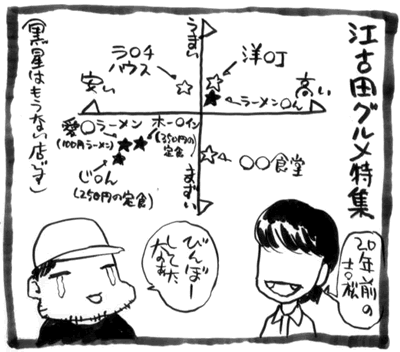 江古田グルメ特集
うまい
まずい
安い
高い
ラ○チ
ハウス
洋○丁
ラーメン○ん
愛○ラーメン
(100円ラーメン)
ホー○イン
(350円の
定食)
じ○ん
(250円の定食)
○○食堂
(黒星はもうない店です)
20年前の
吉松
びんぼー
してた
なぁ…